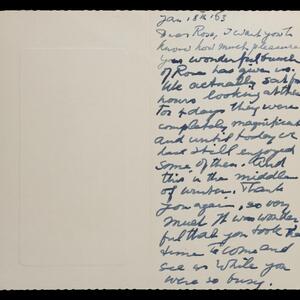 Jan. 18th 63
Dear Rose, I want you to
know how much pleasure
your wonderful bunch
of Roses has given us.
We actually sat for
hours looking at them
for 4 days they were
completely magnificent
and until today we
have still enjoyed
some of them. And
this in the middle
of winter. Thank
you again, so very
much. It was wonder
ful that you took the
time to come and
see us while you
were so busy.